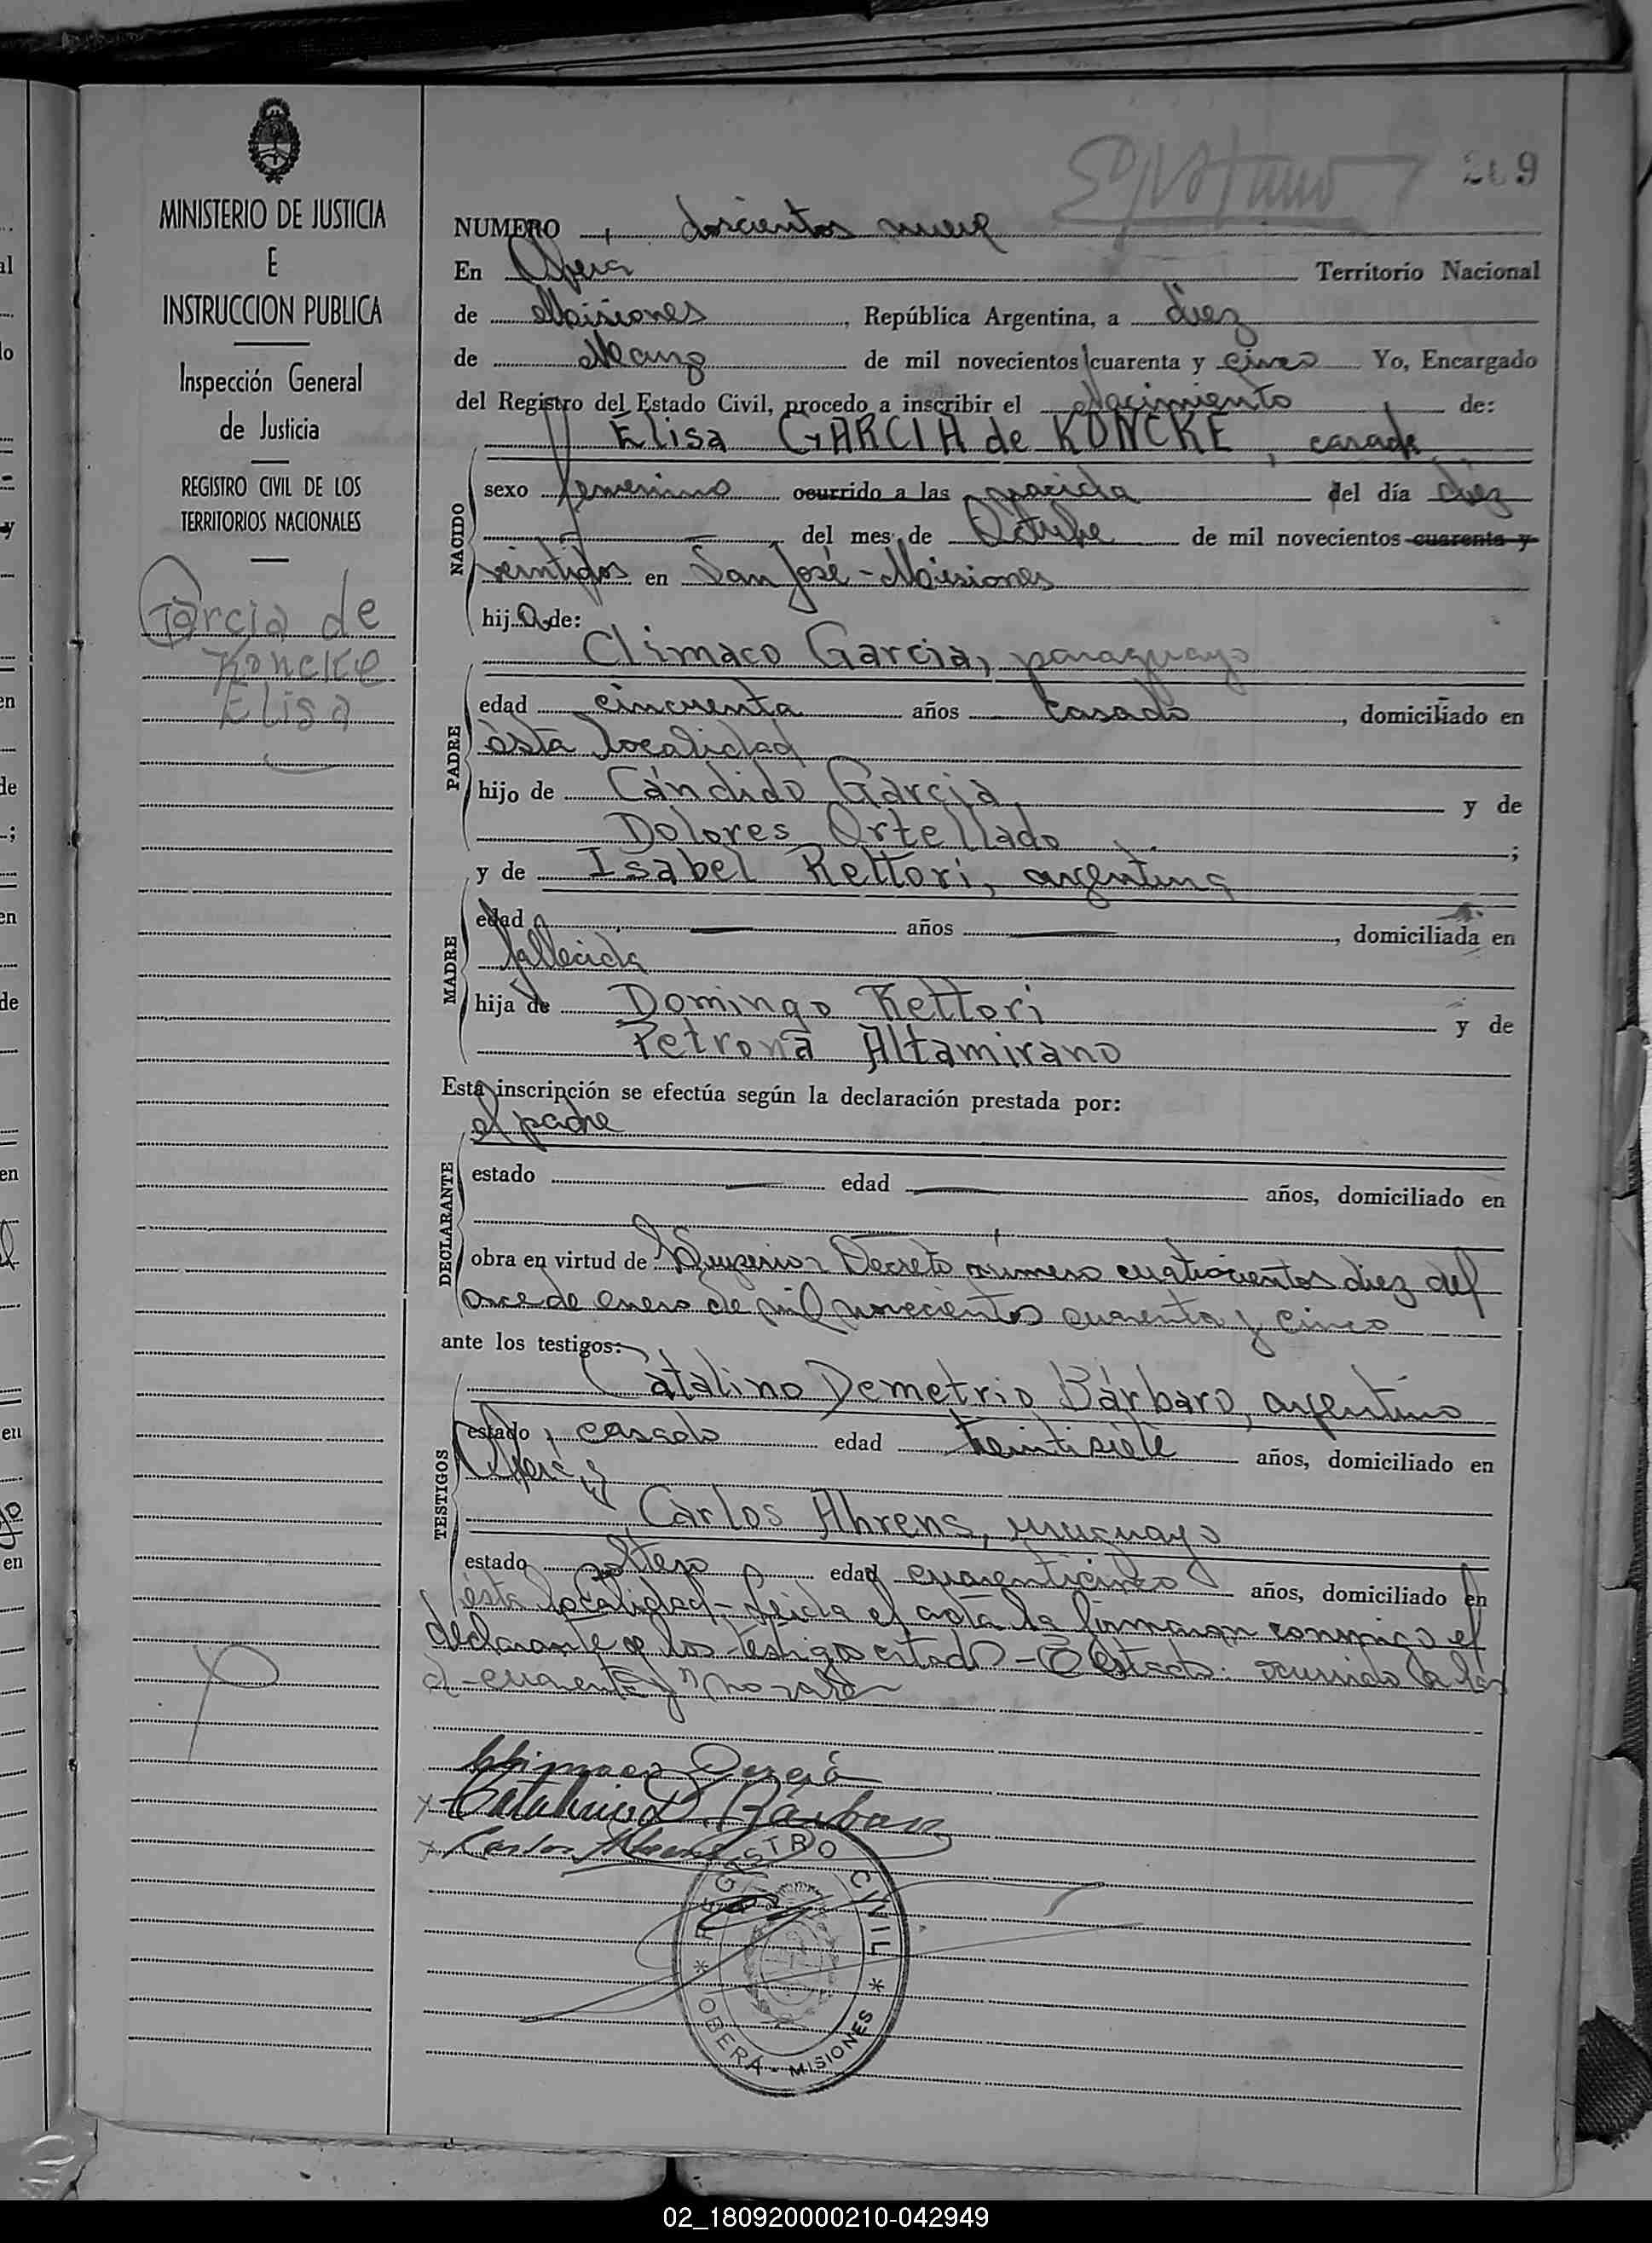 MINISTERIO DE JUSTICIA
E
INSTRUCCION PUBLICA
Inspección General
de Justicia
REGISTRO CIVIL DE LOS
TERRITORIOS NACIONALES
Garcia de
Koncke
Elisa
209
NUMERO doscientos nueve
En Obera Territorio Nacional
de Misiones, República Argentina, a diez
de Marzo de mil novecientos cuarenta y cinco Yo, Encargado
del Registro del Estado Civil, procedo a inscribir el nacimiento de:
Elisa GARCIA de KONCKE, casada
NACIDO
sexo femenino ocurrido a las nacida del día diez
del mes de Octubre de mil novecientos cuarenta y
veintidos en San José - Misiones
hija de:
Climaco Garcia, paraguayo
PADRE
edad cincuenta años casado, domiciliado en
ésta localidad
hijo de Cándido Garcia, y de
Dolores Ortellado ;
y de Isabel Rettori, argentina
MADRE
edad años, domiciliada en
fallecida
hija de Domingo Rettori y de
Petrona Altamirano
Esta inscripción se efectúa según la declaración prestada por:
el padre
DECLARANTE
estado edad años, domiciliado en
obra en virtud de Superior Decreto número cuatrocientos diez del
once de enero de mil novecientos cuarenta y cinco
ante los testigos:
Catalino Demetrio Bárbaro, argentino
TESTIGOS
estado casado edad treintisiete años, domiciliado en
Obera, y
Carlos Ahrens, uruguayo
estado soltero edad cuarenticinco años, domiciliado en
ésta localidad - Leida el acta la firmaron conmigo el
declarante y los testigos citados - Testado: ocurrido a las
- cuarenta y No vale
Climaco Garcia
Catalino D. Bárbaro
Carlos Ahrens
REGISTRO CIVIL
* OBERA - MISIONES *
02_180920000210-042949